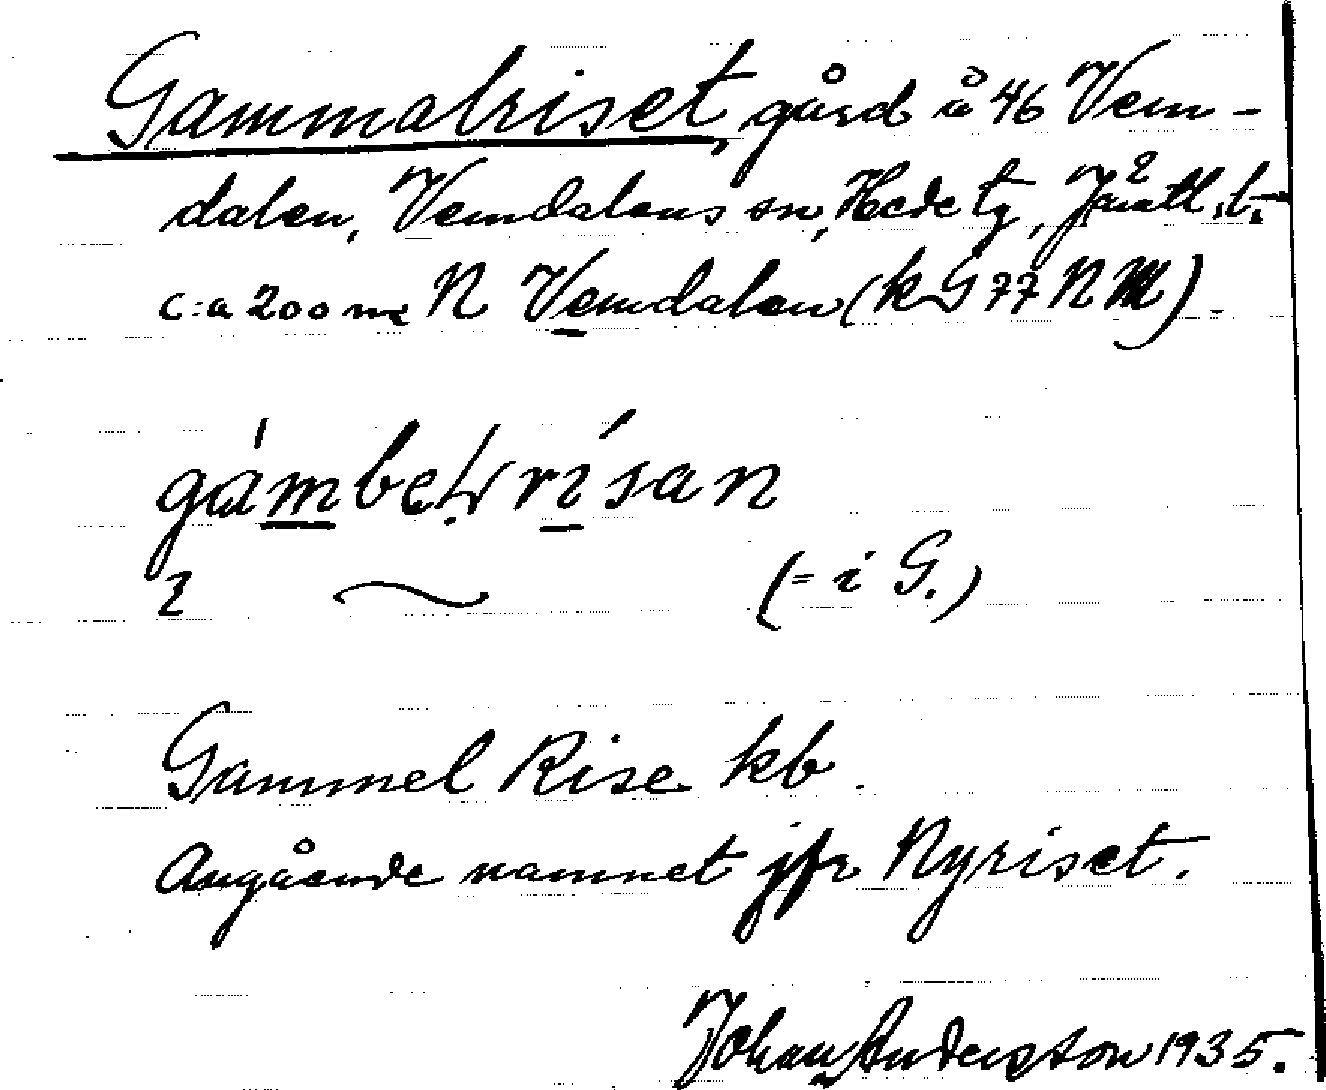 Gammalriset, gård å 46 Vem-
dalen, Vemdalens sn, Hede tg, Jämtl. l.
c:a 200 m N Vemdalen (kG 77 NM).
(= i G.)
Gammel Rise kb.
Angående namnet jfr Nyriset.
Johan Anderson 1935.